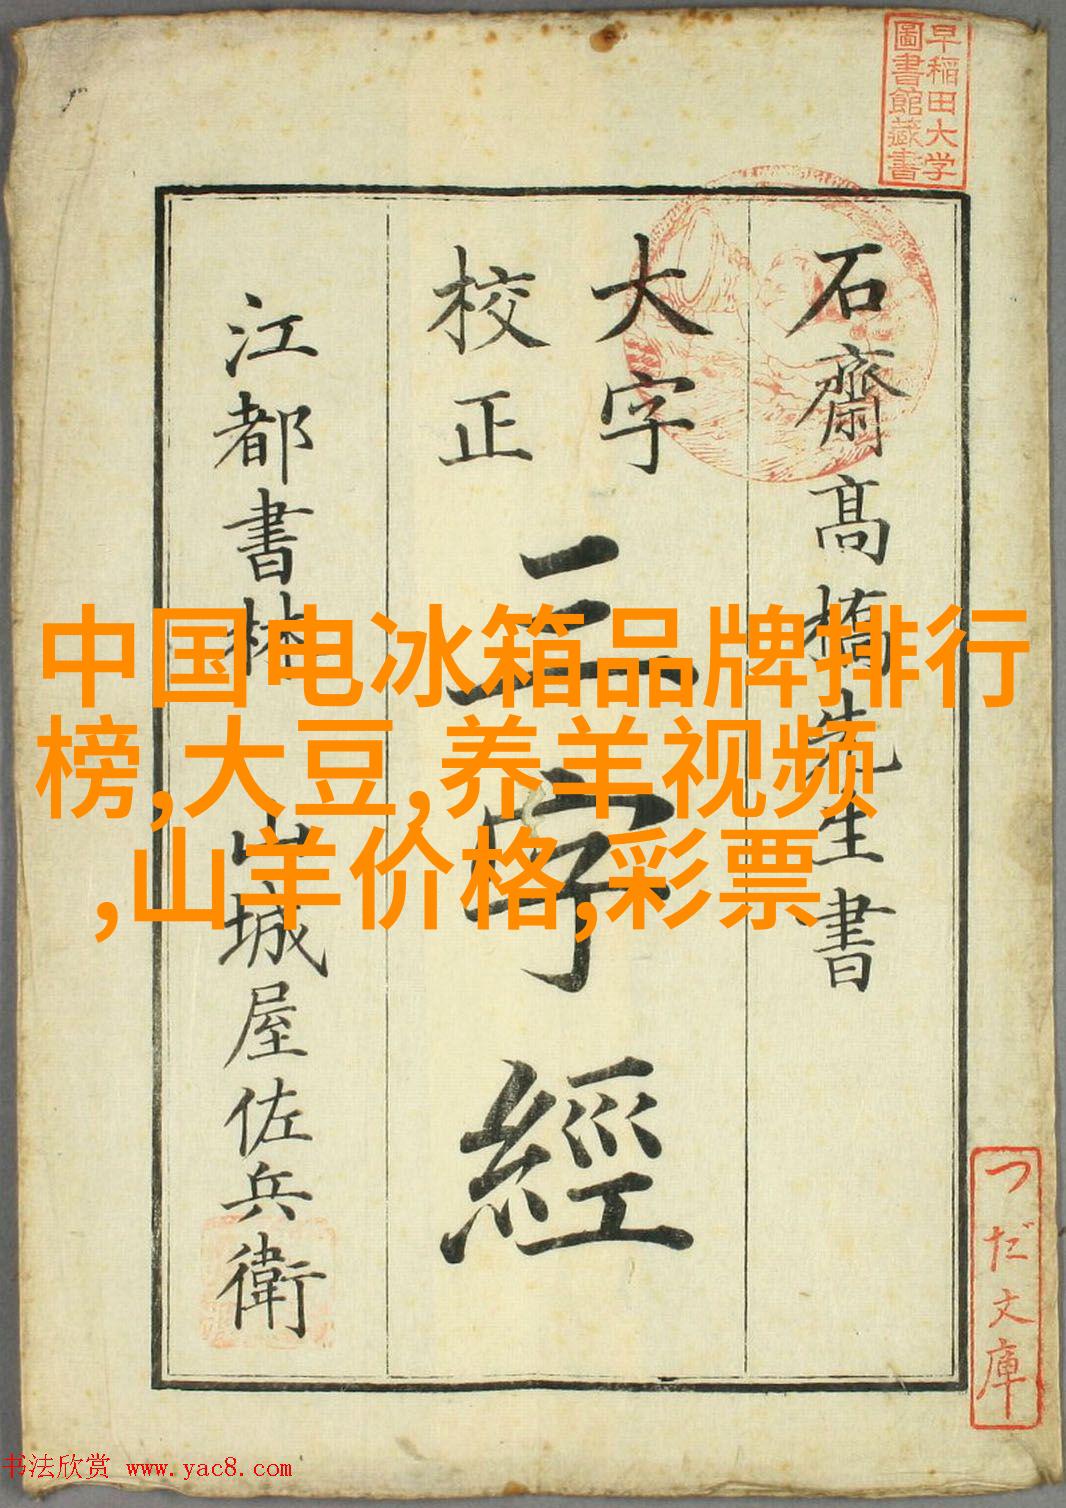 早稲田大学
圖書館藏書
石齋髙橋先生書
大字
校正
三字經
江都書林 山城屋佐兵衛
中国电冰箱品牌排行
榜,大豆,养羊视频
,山羊价格,彩票
つだ文庫
书法欣赏 www.yac8.com